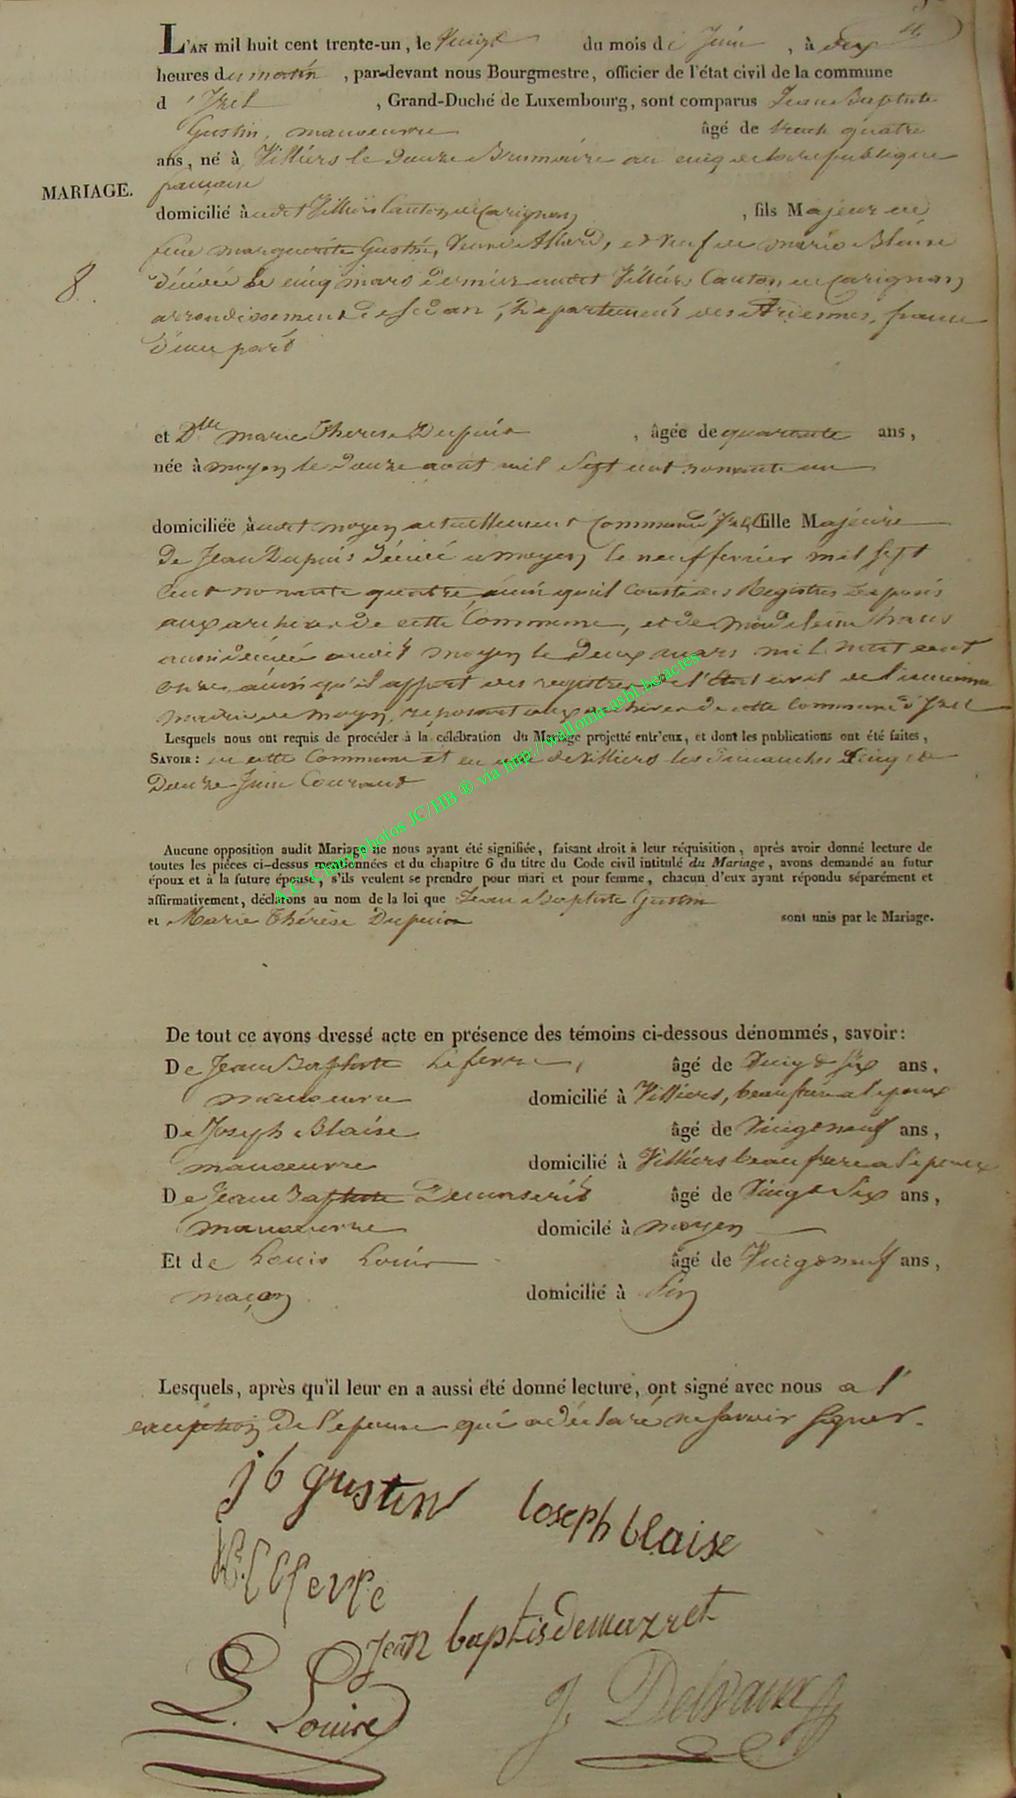 L'AN mil huit cent trente-un, le Vingt du mois de Juin, à dix
heures du matin, par-devant nous Bourgmestre, officier de l'état civil de la commune
d'Izel, Grand-Duché de Luxembourg, sont comparus Jean Baptiste
Gustin, manoeuvre âgé de trente quatre
ans, né à Villiers le Douze Brumaire an cinq de la republique
MARIAGE.
francaise
domicilié à audit Villiers Canton de Carignan, fils Majeur de
feue marguerite Gustin, Allard, et Veuf de marie Blaise
8.
décédée le cinq mars dernier audit Villiers Canton de Carignan
arrondissement de Sedan, Departement des Ardennes, france
d'une part
et Dlle marie Therese Dupuis, âgée de quarante ans,
née à moyen le Douze aout mil Sept cent nonante un
domiciliée à audit moyen actuellement Commune d'Izel fille Majeure
De Jean Dupuis décédé a moyen le neuf fevrier mil sept
Cent nonante quatre ainsi qu'il conste des Registres Deposés
aux archives de cette Commune, et de Madeleine
aussi décédée audit moyen le Deux mars mil huit cent
onze, ainsi qu'il appert des registres de l'Etat civil de l'ancienne
mairie de moyen, reposant aux archives de cette Commune d'Izel
Lesquels nous ont requis de procéder à la célébration du Mariage projetté entr'eux, et dont les publications ont été faites,
SAVOIR : en cette Commune et en celle de Villiers les Dimanches Cinq et
Douze Juin Courant
A.C. Chiny photos JC/HB ® via http://wallonia-asbl.be/actes
Aucune opposition audit Mariage ne nous ayant été signifiée, faisant droit à leur réquisition, après avoir donné lecture de
toutes les pièces ci-dessus mentionnées et du chapitre 6 du titre du Code civil intitulé du Mariage, avons demandé au futur
époux et à la future épouse, s'ils veulent se prendre pour mari et pour femme, chacun d'eux ayant répondu séparément et
affirmativement, déclarons au nom de la loi que Jean Baptiste Gustin
et Marie Thérèse Dupuis sont unis par le Mariage.
De tout ce avons dressé acte en présence des témoins ci-dessous dénommés, savoir:
De Jean Baptiste Lefevre, âgé de Vingt Six ans,
manoeuvre domicilié à Villiers, beau frere a l'epoux
De Joseph Blaise âgé de Vingt neuf ans,
manoeuvre domicilié à Villiers beau frere a l'epoux
De Jean Baptiste âgé de Vingt Six ans,
manoeuvre domicilé à moyen
Et de Louis Louis âgé de Vingt neuf ans,
maçon domicilié à Pin
Lesquels, après qu'il leur en a aussi été donné lecture, ont signé avec nous a l'
exception De l'epouse qui a déclaré ne savoir signer.
j b gustin
Joseph blaise
Lefevre
jean baptis demazret
L. Louis
J. Delvaux